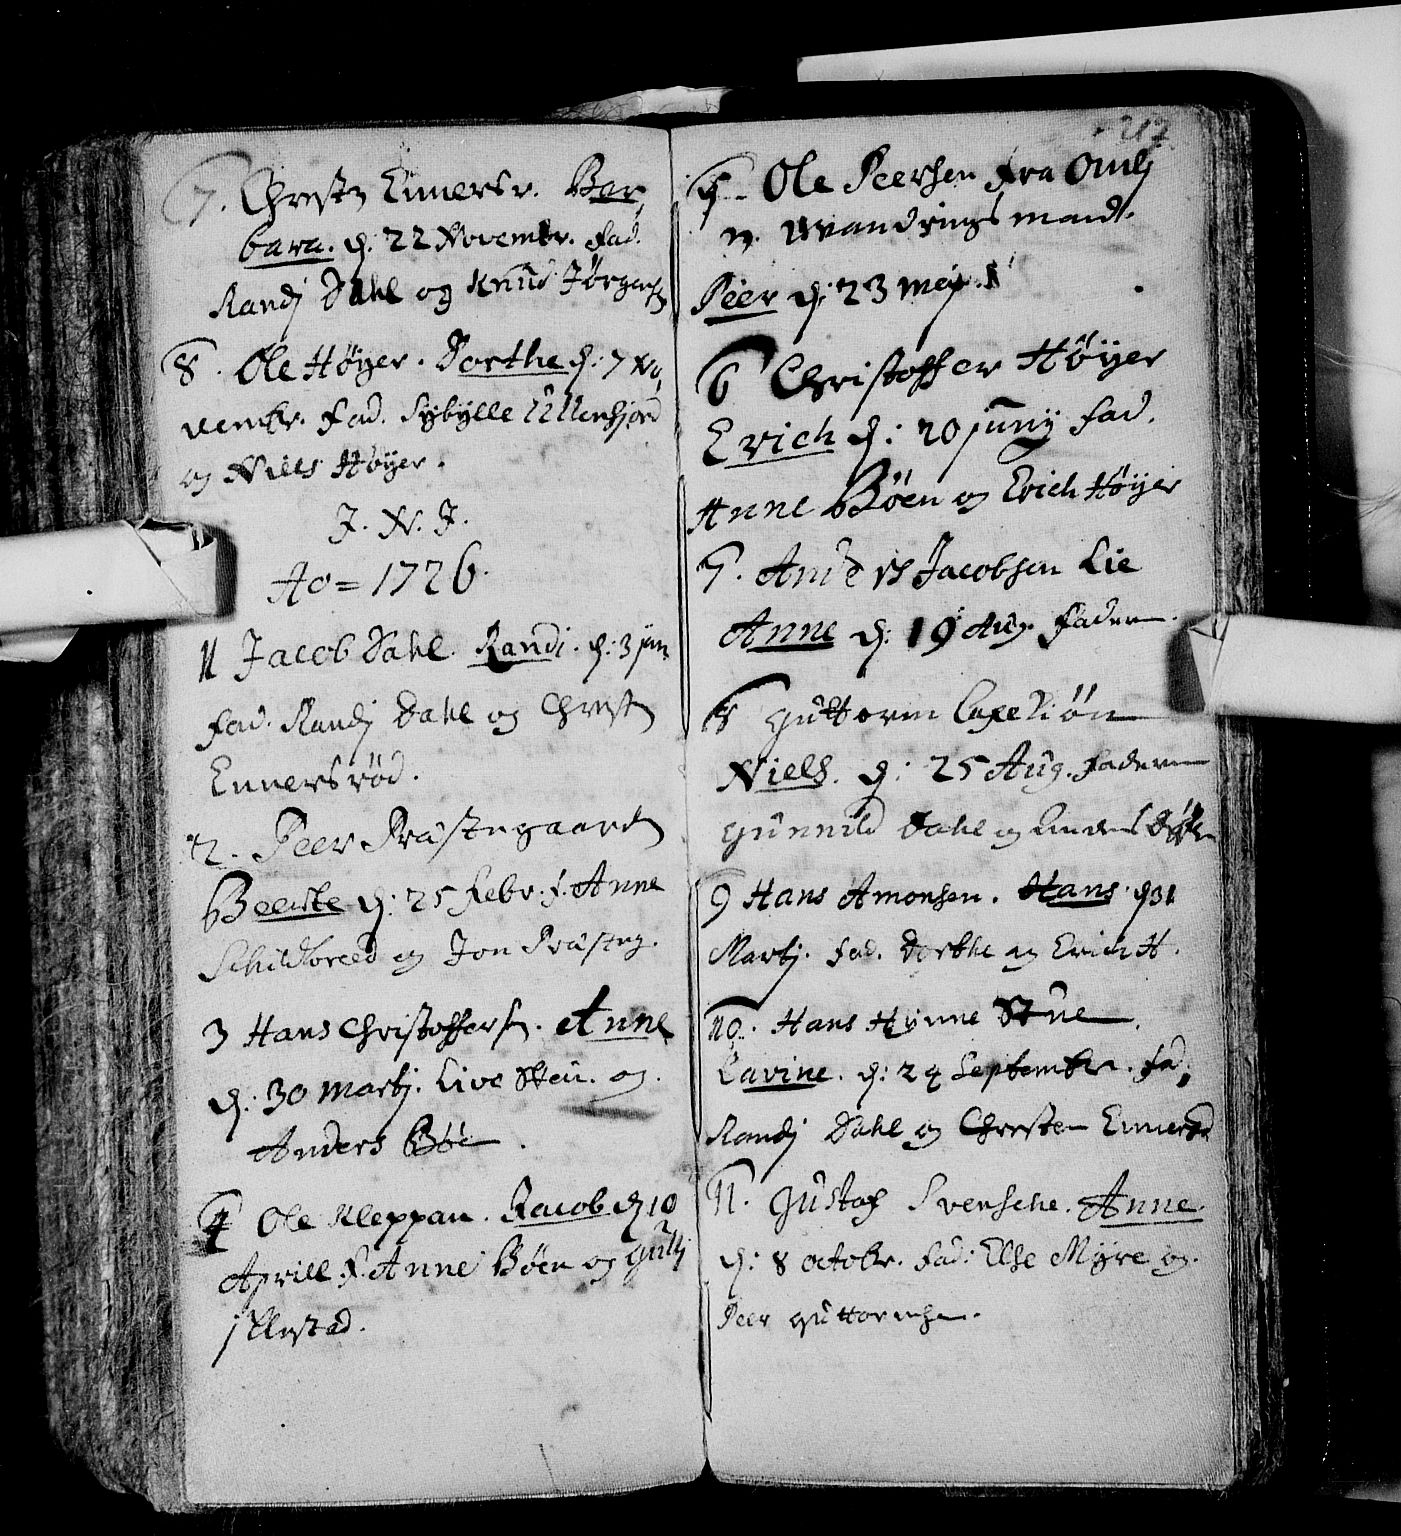 7. Christen Ennersr. Bar,
bara. d: 22 Novembr. Fad.
Randj Dahl og Knud Jørgens
8. Ole Høyer. Dorthe d: 7 No,
vembr. Fad. Sybylle Ullensfjord
og Niels Høyer.
J. N. J.
Ao = 1726.
11 Jacob Dahl. Randi. d: 3 jan
Fad. Randj Dahl og Christen
Ennersrød.
2. Peer Præstegaarden
Beerte d: 25 Febr. f. Anne
Schildbreed og Jon Præsteg.
3 Hans Christoffersn. Anne
d: 30 martj. Live Steu. og
Anders Böe.
4 Ole Kleppan. Jacob d 10
Aprill. f. Anne Böen og Gullj
jllestad.
217
5. Ole Peersen fra Omlj
n. Wandrings mand.
Peer d: 23 mej.
6 Christoffer Høyer
Erich d: 20 junij fad.
Anne Böen og Erich Høyer
7. Anders Jacobsen Lie
Anne d: 19 Aug. Fadern.
8 Guttorm
Niels. d: 25 Aug. Fadern
Gunnild Dahl og
9 Hans Amonsen. Hans d 31
Martj. Fad. Dorthe og Erich H.
10. Hans Hynne Stue
Lavine. d: 24 Septembr. Fad,
Randj Dahl og Christen Ennersrd
11. Gustaf Svensche. Anne.
d: 8 octobr. Fad: Else Myre og.
Peer Guttormsen.